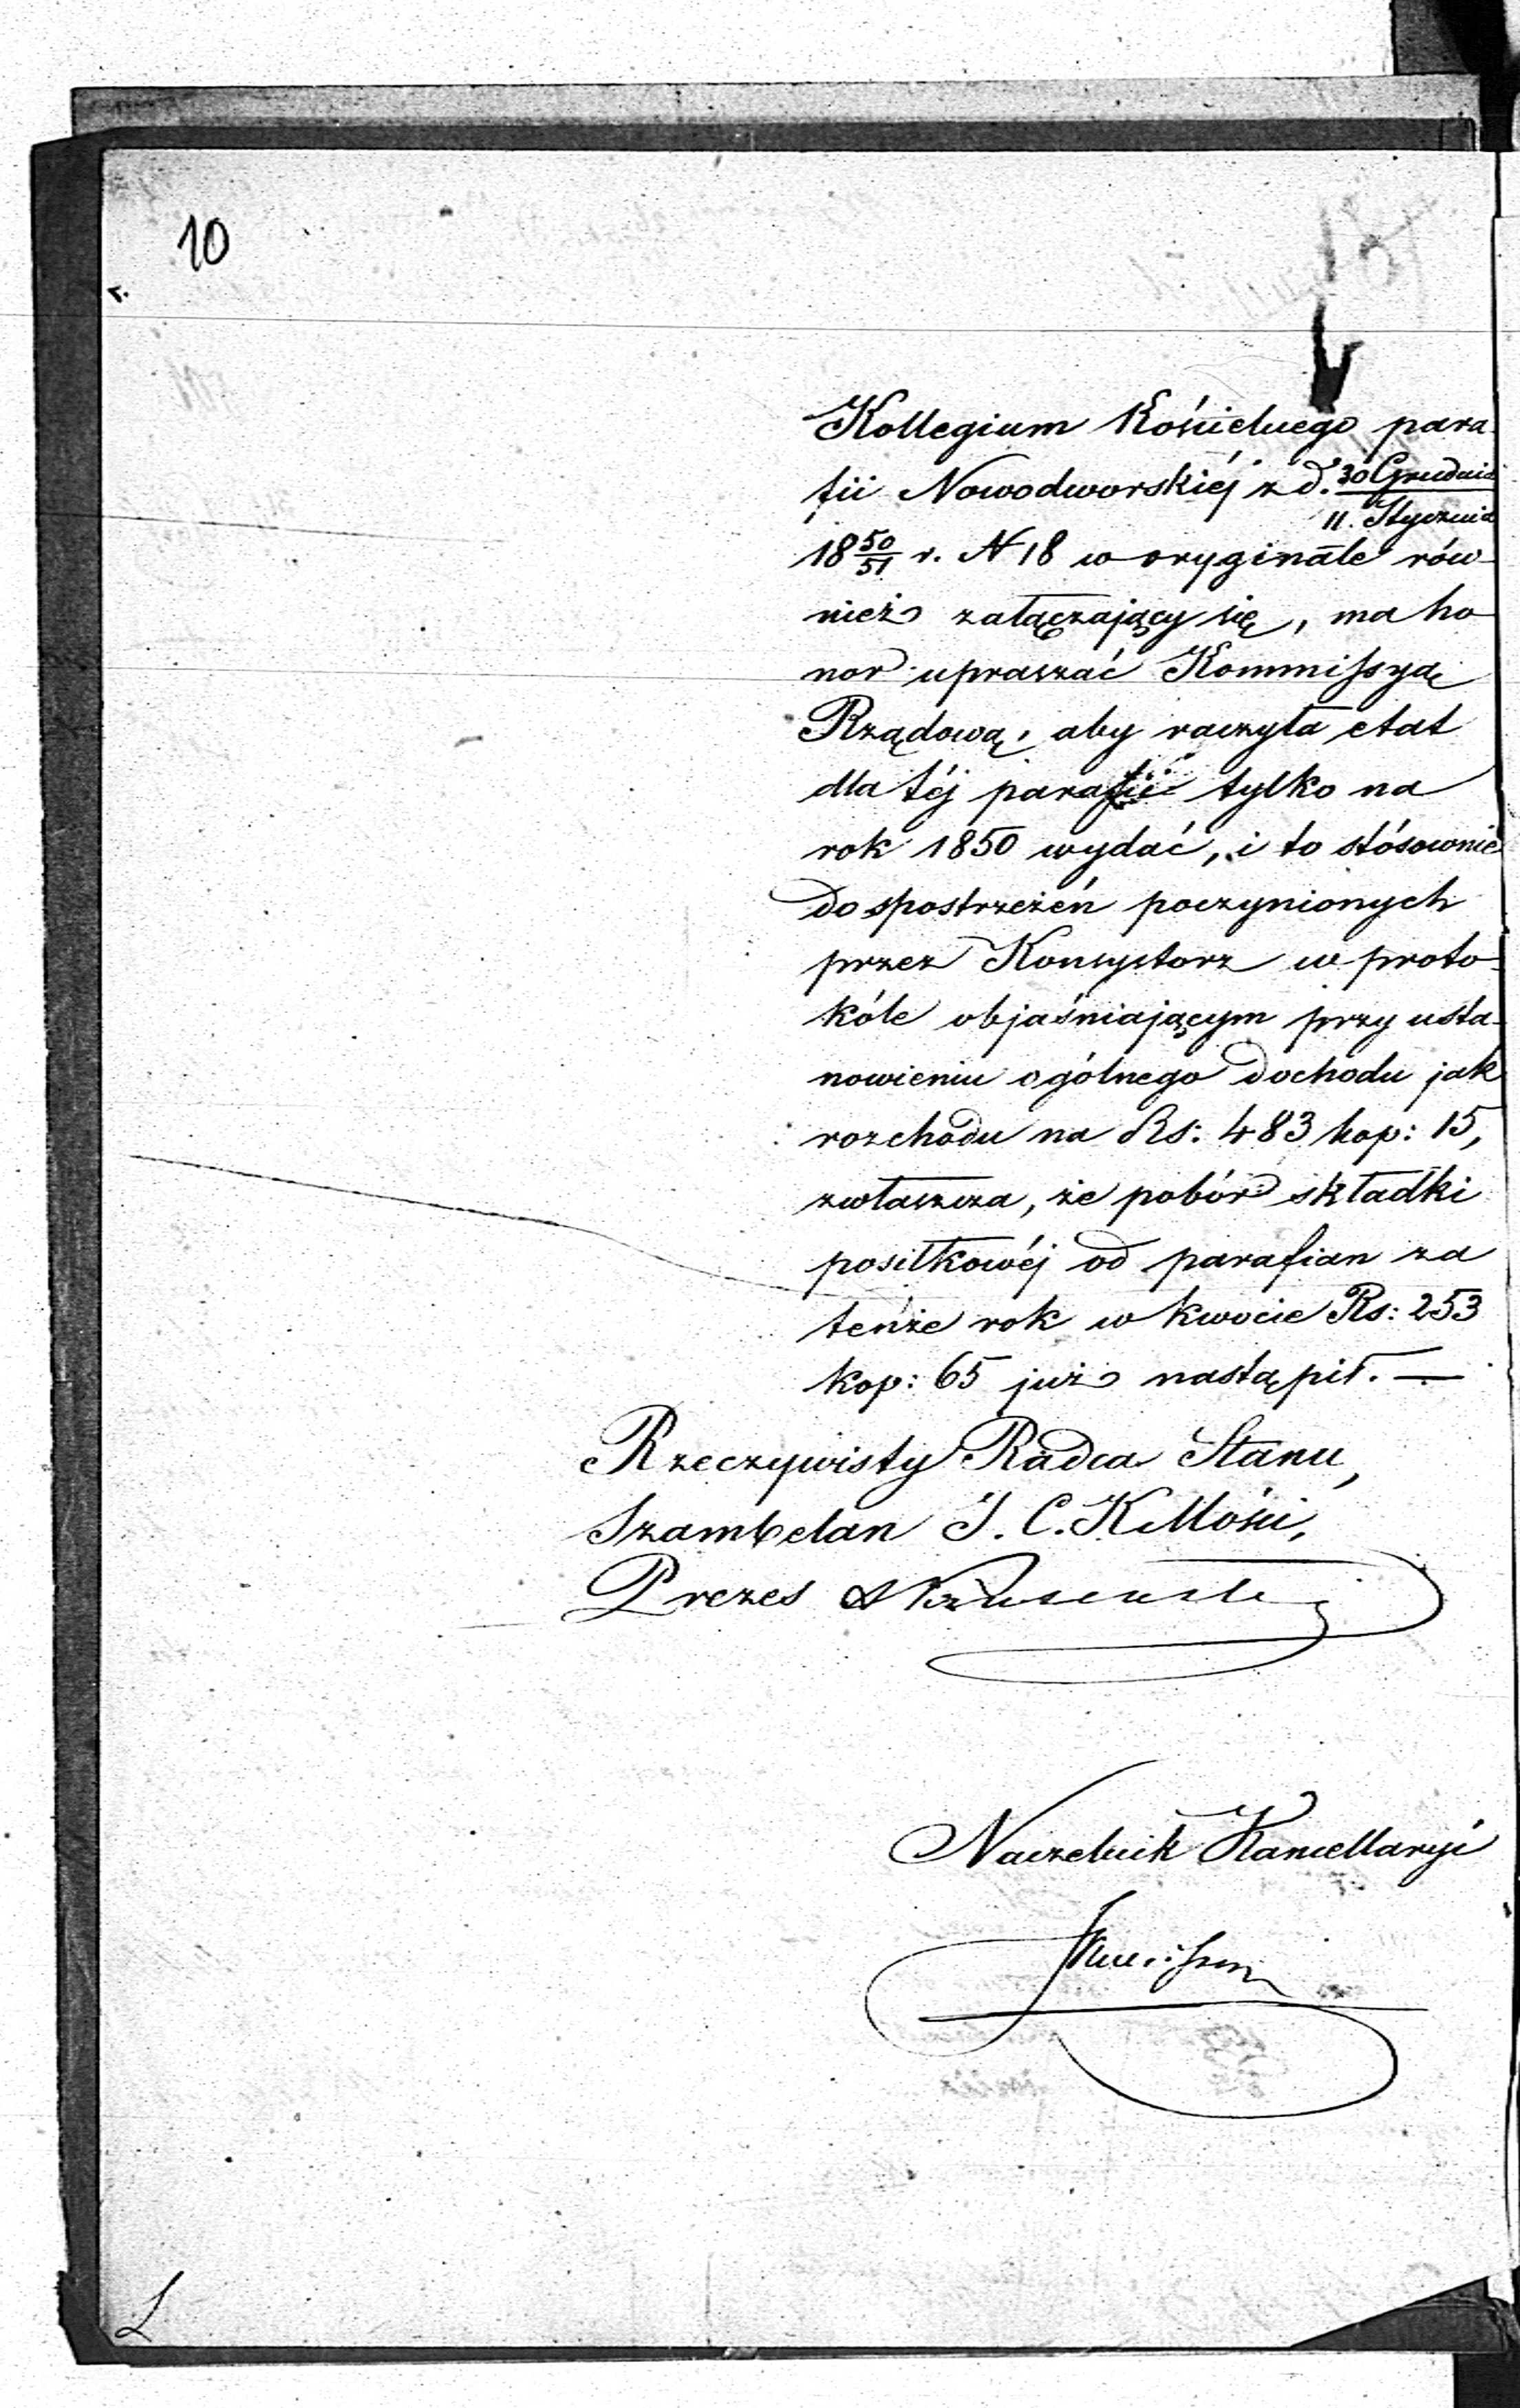 10
Kollegium Kościelnego para-
fii Nowodworskiéj z d. 30 Grudnia
11. Stycznia
18 50/51 r. N 18 w oryginale rów-
nież załączający się, ma ho-
nor upraszać Kommissyą
Rządową, aby raczyła etat
dla téj parafii tylko na
rok 1850 wydać, i to stósownie
do spostrzeżeń poczynionych
przez Konsystorz w proto-
kóle objaśniającym przy usta-
nowieniu ogólnego dochodu jak
rozchodu na Rs: 483 kop: 15,
zwłaszcza, że pobór składki
posiłkowéj od parafian za
tenże rok w kwocie Rs: 253
kop: 65 już nastąpił. —
Rzeczywisty Radca Stanu,
Szambelan J. C. K Mości,
Prezes
Naczelnik Kancellaryi